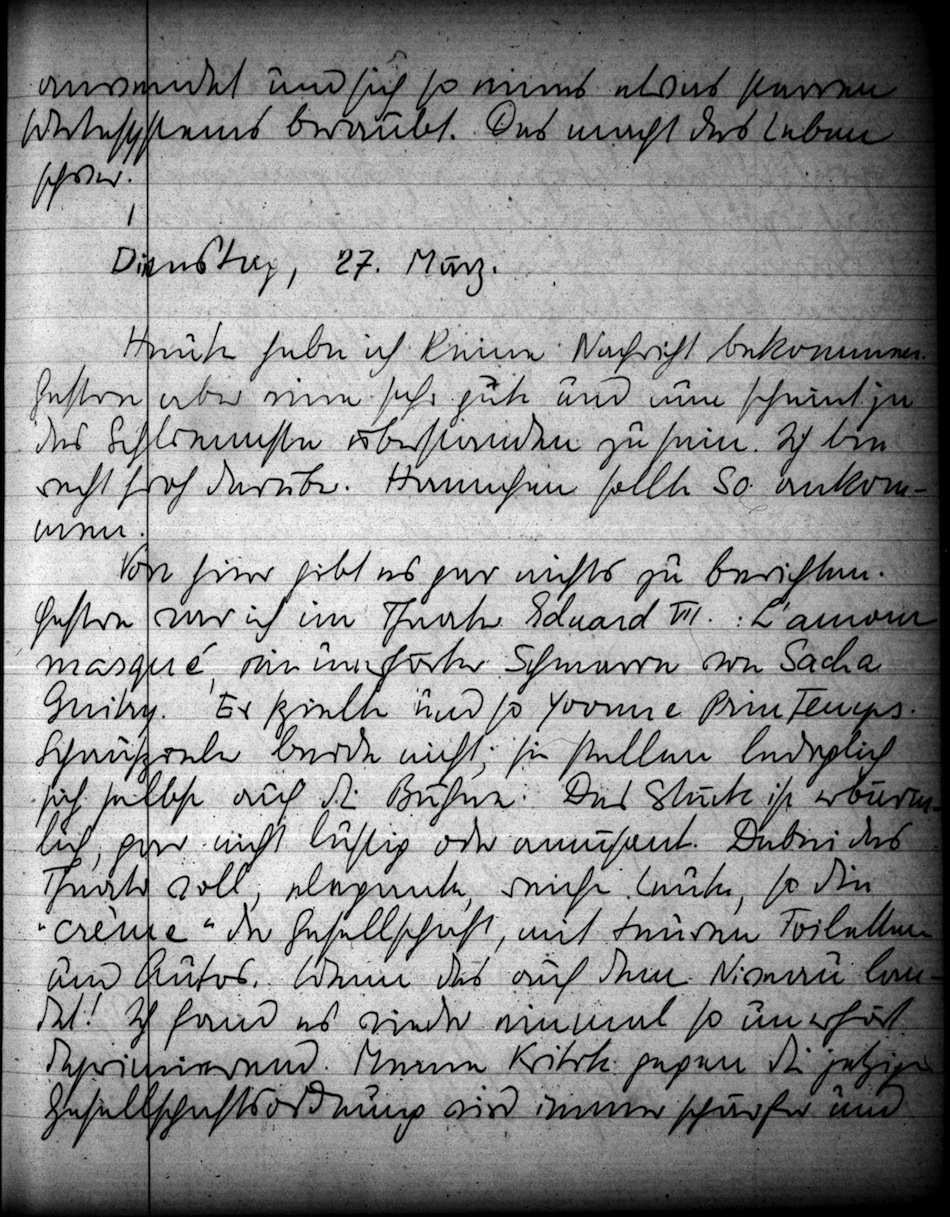 anwendet und sich so eines etwas starren
Wertesystems beraubt. Das macht das Leben
schwer.
Dienstag, 27. März.
Heute habe ich keine Nachricht bekommen.
Gestern aber eine sehr gute und nun scheint ja
das Schlimmste überstanden zu sein. Ich bin
recht froh darüber. Hannchen sollte so ankom-
men.
Von hier gibt es gar nichts zu berichten.
Gestern war ich im Theater Eduard VII. : L'amour
masqué, ein unerhörter Schmarrn von Sacha
Guitry. Er spielte und so Yvonne PrinTemps.
Schauspieler beide nicht; sie stellen lediglich
sich selbst auf die Bühne. Das Stück ist erbärm-
lich, gar nicht lustig oder amusant. Dabei das
Theater voll, elegante, reiche Leute, so die
"crème" der Gesellschaft, mit teuren Toiletten
und Autos. Wenn das auf dem Niveau lan-
det! Ich fand es wieder einmal so unerhört
deprimierend. Meine Kritik gegen die jetzige
Gesellschaftsordnung wird immer schärfer und